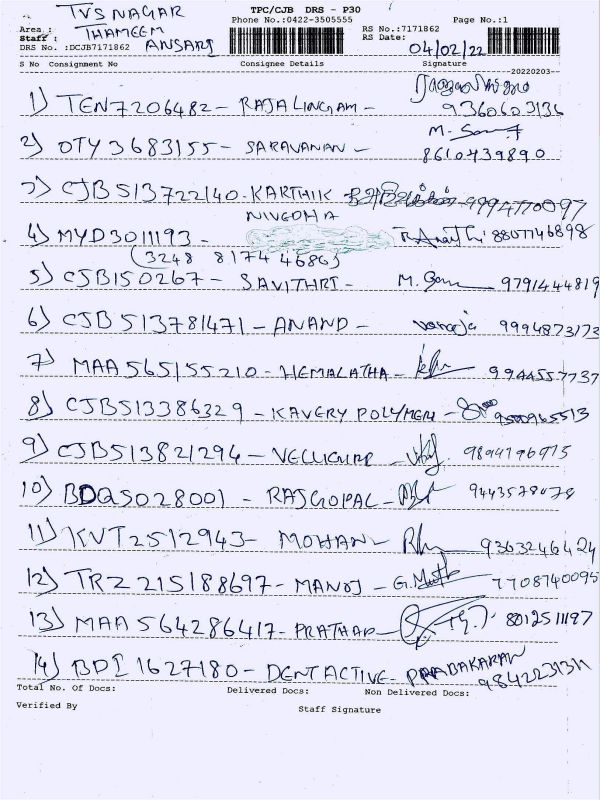 TVS NAGAR
TPC/CJB DRS - P30
Phone No.:0422-3505555
Page No.:1
Area :
Staff : THAMEEM ANSARI
RS No.:7171862
RS Date: 04/02/22
DRS No. :DCJB7171862
S No Consignment No Consignee Details Signature
20220203
1) TEN7206482 - RAJALINGAM - 9360603136
2) OTY3683155 - SARAVANAN - M. 8610439890
3) CJB513722140 - KARTHIK 9994770097
NIVEDHA
4) MYD3011193 - 8807746898
(3248 8174 4686)
5) CJB150267 - SAVITHRI - M. 9791444819
6) CJB513781471 - ANAND - vanaja 9994873173
7) MAA565155210 - HEMALATHA - 9944557737
8) CJB513386329 - KAVERY POLYMERS - 9500965513
9) CJB513821294 - 9894196975
10) BDQ5028001 - RAJGOPAL - 9443578078
11) KVT2512943 - MOHAN - 9363246424
12) TRZ215188697 - MANOJ - 7708740095
13) MAA564286417 - PRATHAP - 8012511197
14) BDI1627180 - DENT ACTIVE - PRABAKARAN
9842231311
Total No. Of Docs: Delivered Docs: Non Delivered Docs:
Verified By Staff Signature